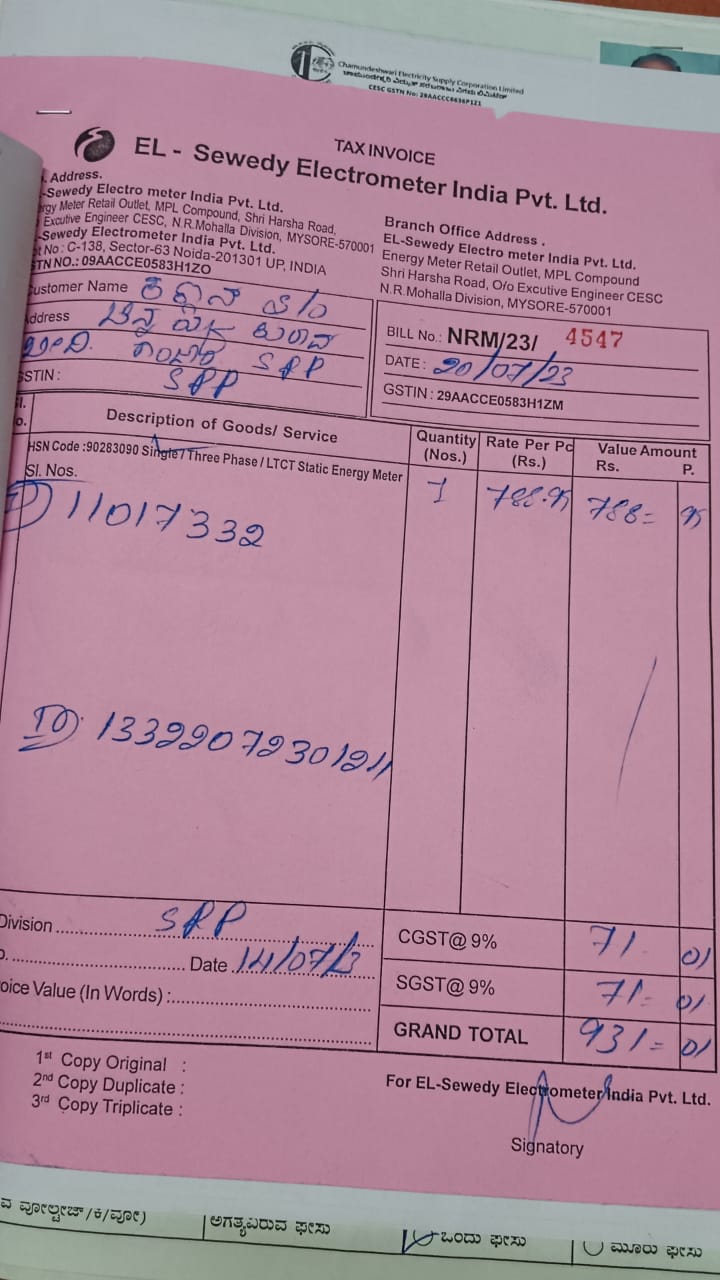 Chamundeshwari Electricity Supply Corporation Limited
CESC GSTN No: 29AACCC6636P1Z1
TAX INVOICE
EL - Sewedy Electrometer India Pvt. Ltd.
. Address.
-Sewedy Electro meter India Pvt. Ltd.
rgy Meter Retail Outlet, MPL Compound, Shri Harsha Road,
Excutive Engineer CESC, N.R.Mohalla Division, MYSORE-570001
-Sewedy Electrometer India Pvt. Ltd.
t No : C-138, Sector-63 Noida-201301 UP, INDIA
TN NO.: 09AACCE0583H1ZO
Branch Office Address .
EL-Sewedy Electro meter India Pvt. Ltd.
Energy Meter Retail Outlet, MPL Compound
Shri Harsha Road, O/o Excutive Engineer CESC
N.R.Mohalla Division, MYSORE-570001
ustomer Name S/o
ddress
SRP
STIN : SRP
BILL No.: NRM/23/ 4547
DATE : 20/07/23
GSTIN : 29AACCE0583H1ZM
l.
o. Description of Goods/ Service Quantity (Nos.) Rate Per Pc (Rs.) Value Amount Rs. P.
HSN Code :90283090 Single / Three Phase / LTCT Static Energy Meter
Sl. Nos. 1 788.95 788= 95
11017332
13322072301211
Division SRP
o. Date 14/07/3
oice Value (In Words) :
CGST@ 9% 71. 01
SGST@ 9% 71= 01
GRAND TOTAL 931= 01
1st Copy Original :
2nd Copy Duplicate :
3rd Copy Triplicate :
For EL-Sewedy Electrometer India Pvt. Ltd.
Signatory
ವ ವೋಲ್ಟೇಜ್/ಕಿ/ವೋ) ಅಗತ್ಯವಿರುವ ಫೇಸು ಒಂದು ಫೇಸು ಮೂರು ಫೇಸು